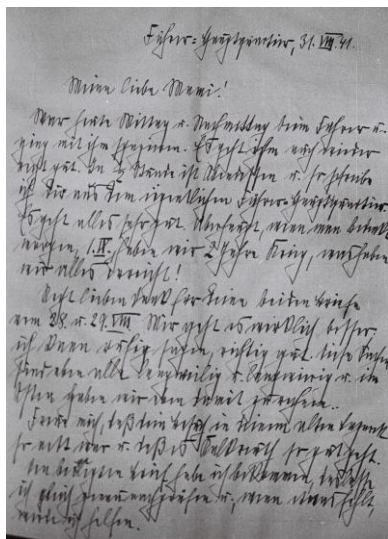 Führer-Hauptquartier, 31. VIII. 41.
Meine liebe Mami!
War heute Mittag u. Nachmittag beim Führer u.
ging mit ihm spazieren. Es geht ihm auch wieder
recht gut. In ½ Stunde ist Abendessen u. so schreibe
ich Dir aus dem Führer-Hauptquartier.
Es geht alles sehr gut. Überhaupt, wenn man bedenkt
morgen, 1. IX. haben wir 2 Jahre Krieg, was haben
wir alles erreicht!
Recht lieben Dank für Deine beiden Briefe
vom 28. u. 29. VIII. Mir geht es wirklich besser,
ich kann ruhig sagen, richtig gut. Diese
sind eben alle langweilig u. langwierig u. im
Osten haben wir
Freue mich, daß Dein in Deiner alten
so nett war u. daß es so gut geht.
Den Brief habe ich bekommen,
ich gleich genau nachprüfen u., wenn etwas fehlt,
werde ich helfen.